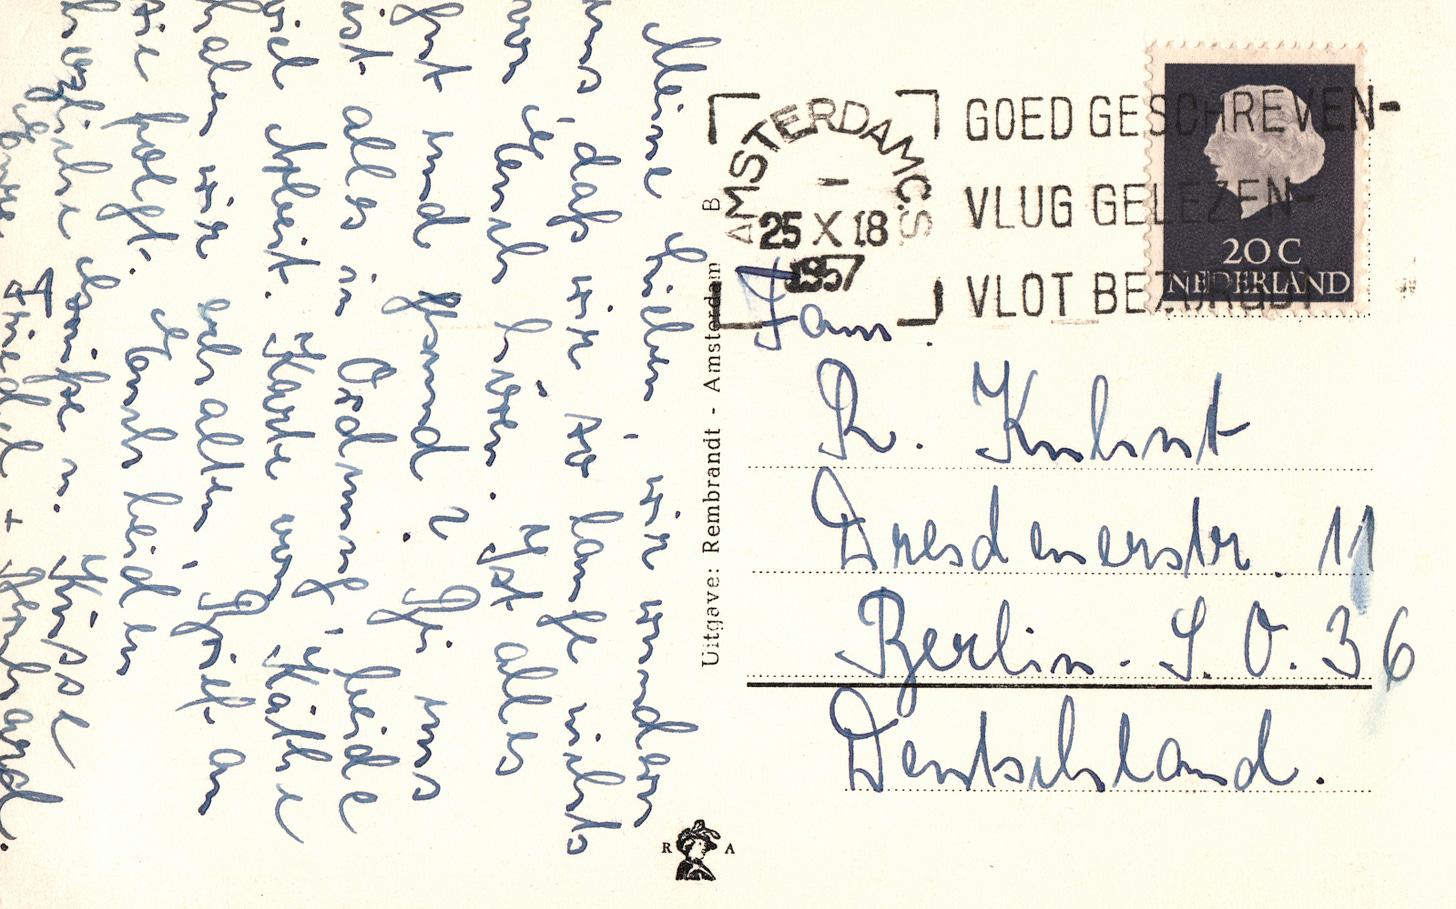 Meine Lieben, wir wundern
uns, daß wir so lange nichts
von Euch hören. Ist alles
gut und gesund? Bei uns
ist alles in Ordnung, beide
viel Arbeit. Karte von Käthe
haben wir erhalten, Brief an
sie folgt. Euch beiden
herzliche Grüße u. Küsse
Eure
Friedel + Gerhard.
Uitgave: Rembrandt - Amsterdam B
R A
AMSTERDAM C.S
25 X 18
1957
GOED GESCHREVEN-
VLUG GELEZEN-
VLOT BEZORGD!
20 C
NEDERLAND
Fam.
R. Kuhnt
Dresdenerstr. 11
Berlin - S.O. 36
Deutschland.